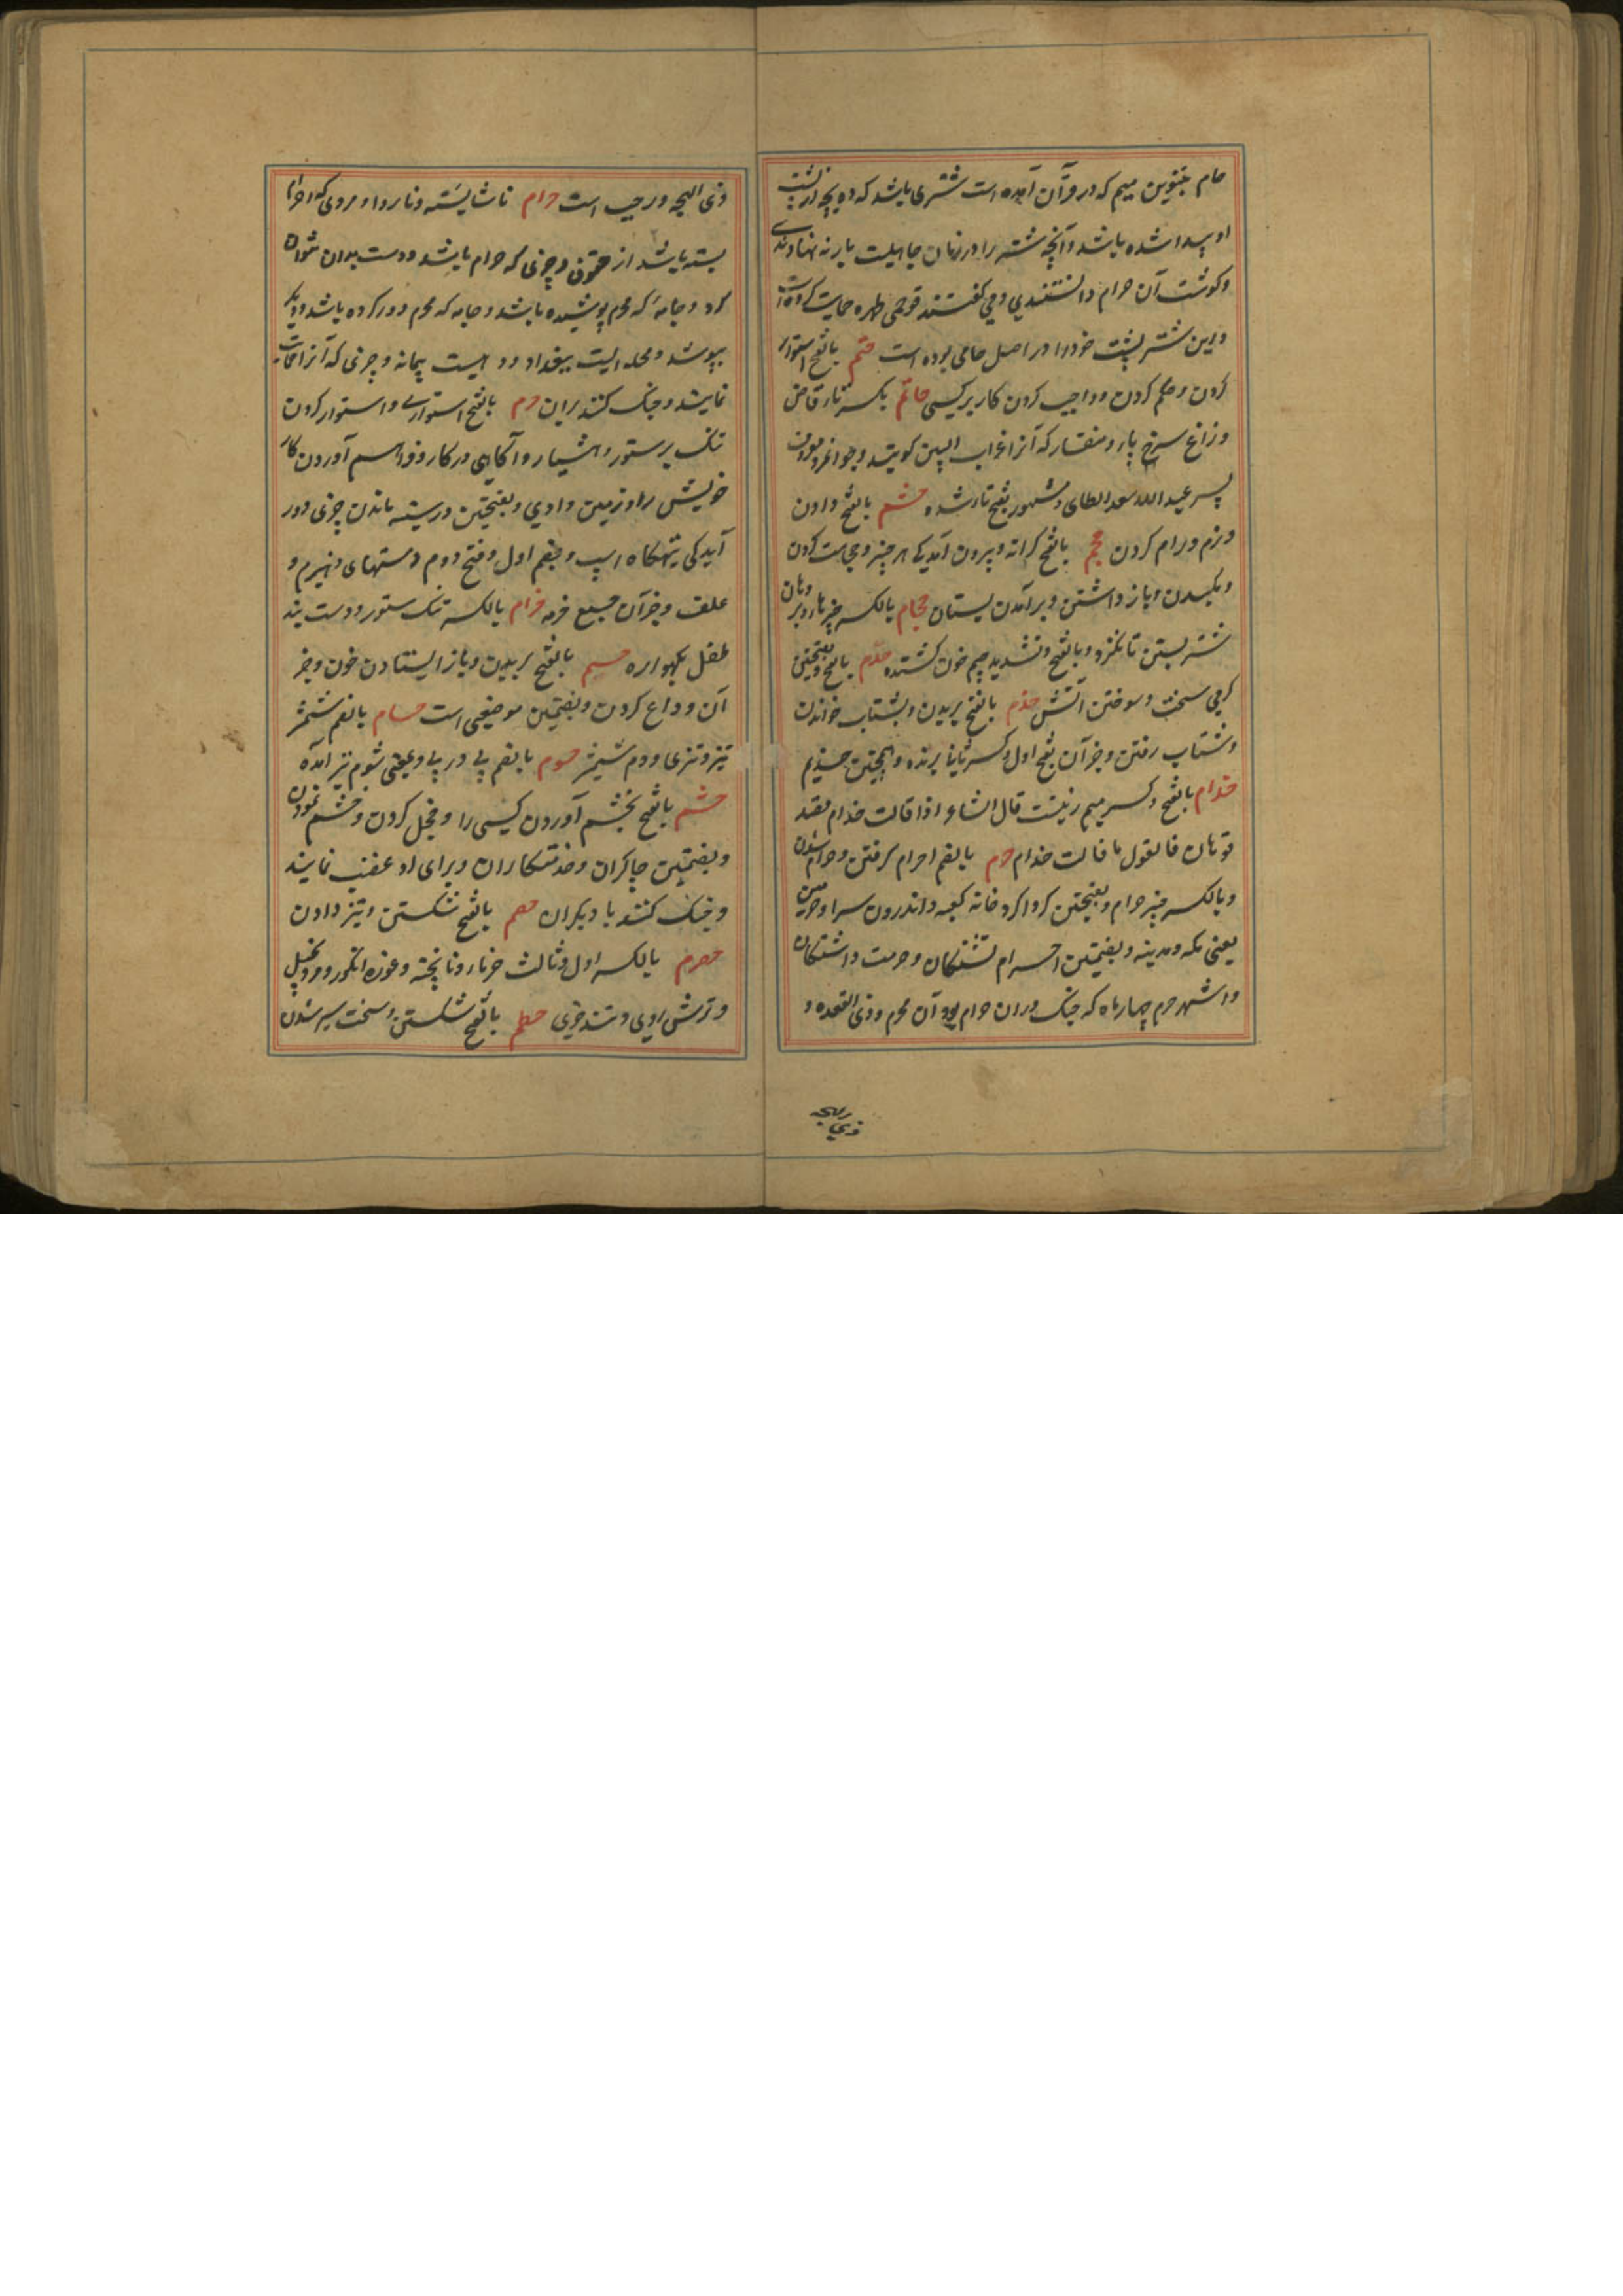 حام بتنوین میم که در قرآن آمده است شتری باشد که ده بچه از پشت
او پیدا شده باشد و آنچه شتر را در زمان جاهلیت بار نه نهادندی
و گوشت آن حرام دانستندی و می گفتند قد حمی ظهره حمایت کرده است
و این شتر پشت خود را در اصل حامی بوده است حتم بالفتح استوار
کردن و حکم کردن و واجب کردن کار بر کسی حاتم بکسر تاء قاضی
و زاغ سرخ پا و منقار که آنرا غراب البین گویند و جوانمرد معروف
پسر عبد الله سعد الطائی و مشهور بفتح تاء شده حثم بالفتح دادن
و نرم و رام کردن حجم بالفتح کرانه و بیرون آمدگی هر چیز و حجامت کردن
و مکیدن و باز داشتن و برآمدن پستان حجام بالکسر چیزی که بر دهان
شتر بستن تا نگزد و بالفتح و تشدید جیم خون کشنده حدم بالفتح و بفتحتین
گرمی سخت و سوختن آتش حذم بالفتح بریدن و بشتاب خواندن
و شتاب رفتن و جز آن بفتح اول و کسر ثانی برنده و همچنین حذیم
حذام بالفتح و کسر میم زنیست قال الشاعر اذا قالت حذام فقد
قوتان فالقول ما قالت حذام حرم بالضم احرام گرفتن و حرام شدن
و بالکسر چیز حرام و بفتحتین گرداگرد خانه کعبه و اندرون سرا و حرمین
یعنی مکه و مدینه و بضمتین احرام بستگان و حرمت داشتگان
و اشهر حرم چهار ماه که جنگ در آن حرام بود و آن محرم و ذی القعده و
ذی الحجه
ذی الحجه و رجب است حرام ناشایسته و ناروا و مردی که احرام
بسته باشد از حقوق و چیزی که حرام باشد و دست بدان نتوان
کرد و جامهٔ که محرم پوشیده باشد و جامه که محرم دور کرده باشد و دیگر
بپوشد و محله ایست ببغداد و ده ایست پیمانه و چیزی که آنرا حمایت
نمایند و جنگ کنند بران حزم بالفتح استواری و استوار کردن
تنگ بر ستور و هشیار و آگاهی در کار و فراهم آوردن کار
خویش را و زمین و وادی و بفتحتین در سینه ماندن چیزی و در
آمدگی تهیگاه اسپ و بضم اول و فتح دوم دستهای هیزم و
علف و جز آن جمع حزمه حزام بالکسر تنگ ستور و دست بند
طفل بگهواره حسم بالفتح بریدن و باز ایستادن خون و جز
آن و داغ کردن و بضمتین موضعی است حسام بالضم شمشیر
تیز و تیزی و دم شمشیر حسوم بالضم پی در پی و بمعنی شوم نیز آمده
حشم بالفتح بخشم آوردن کسی را و خجل کردن و خشم نمودن
و بفتحتین چاکران و خدمتگاران و برای او غضب نمایند
و جنگ کنند با دیگران حصم بالفتح شکستن و تیز دادن
حصرم بالکسر اول و ثالث خرمای ناپخته و غوره انگور و مرد بخیل
و ترش روی و تند خوی حطم بالفتح شکستن و سخت سیر شدن